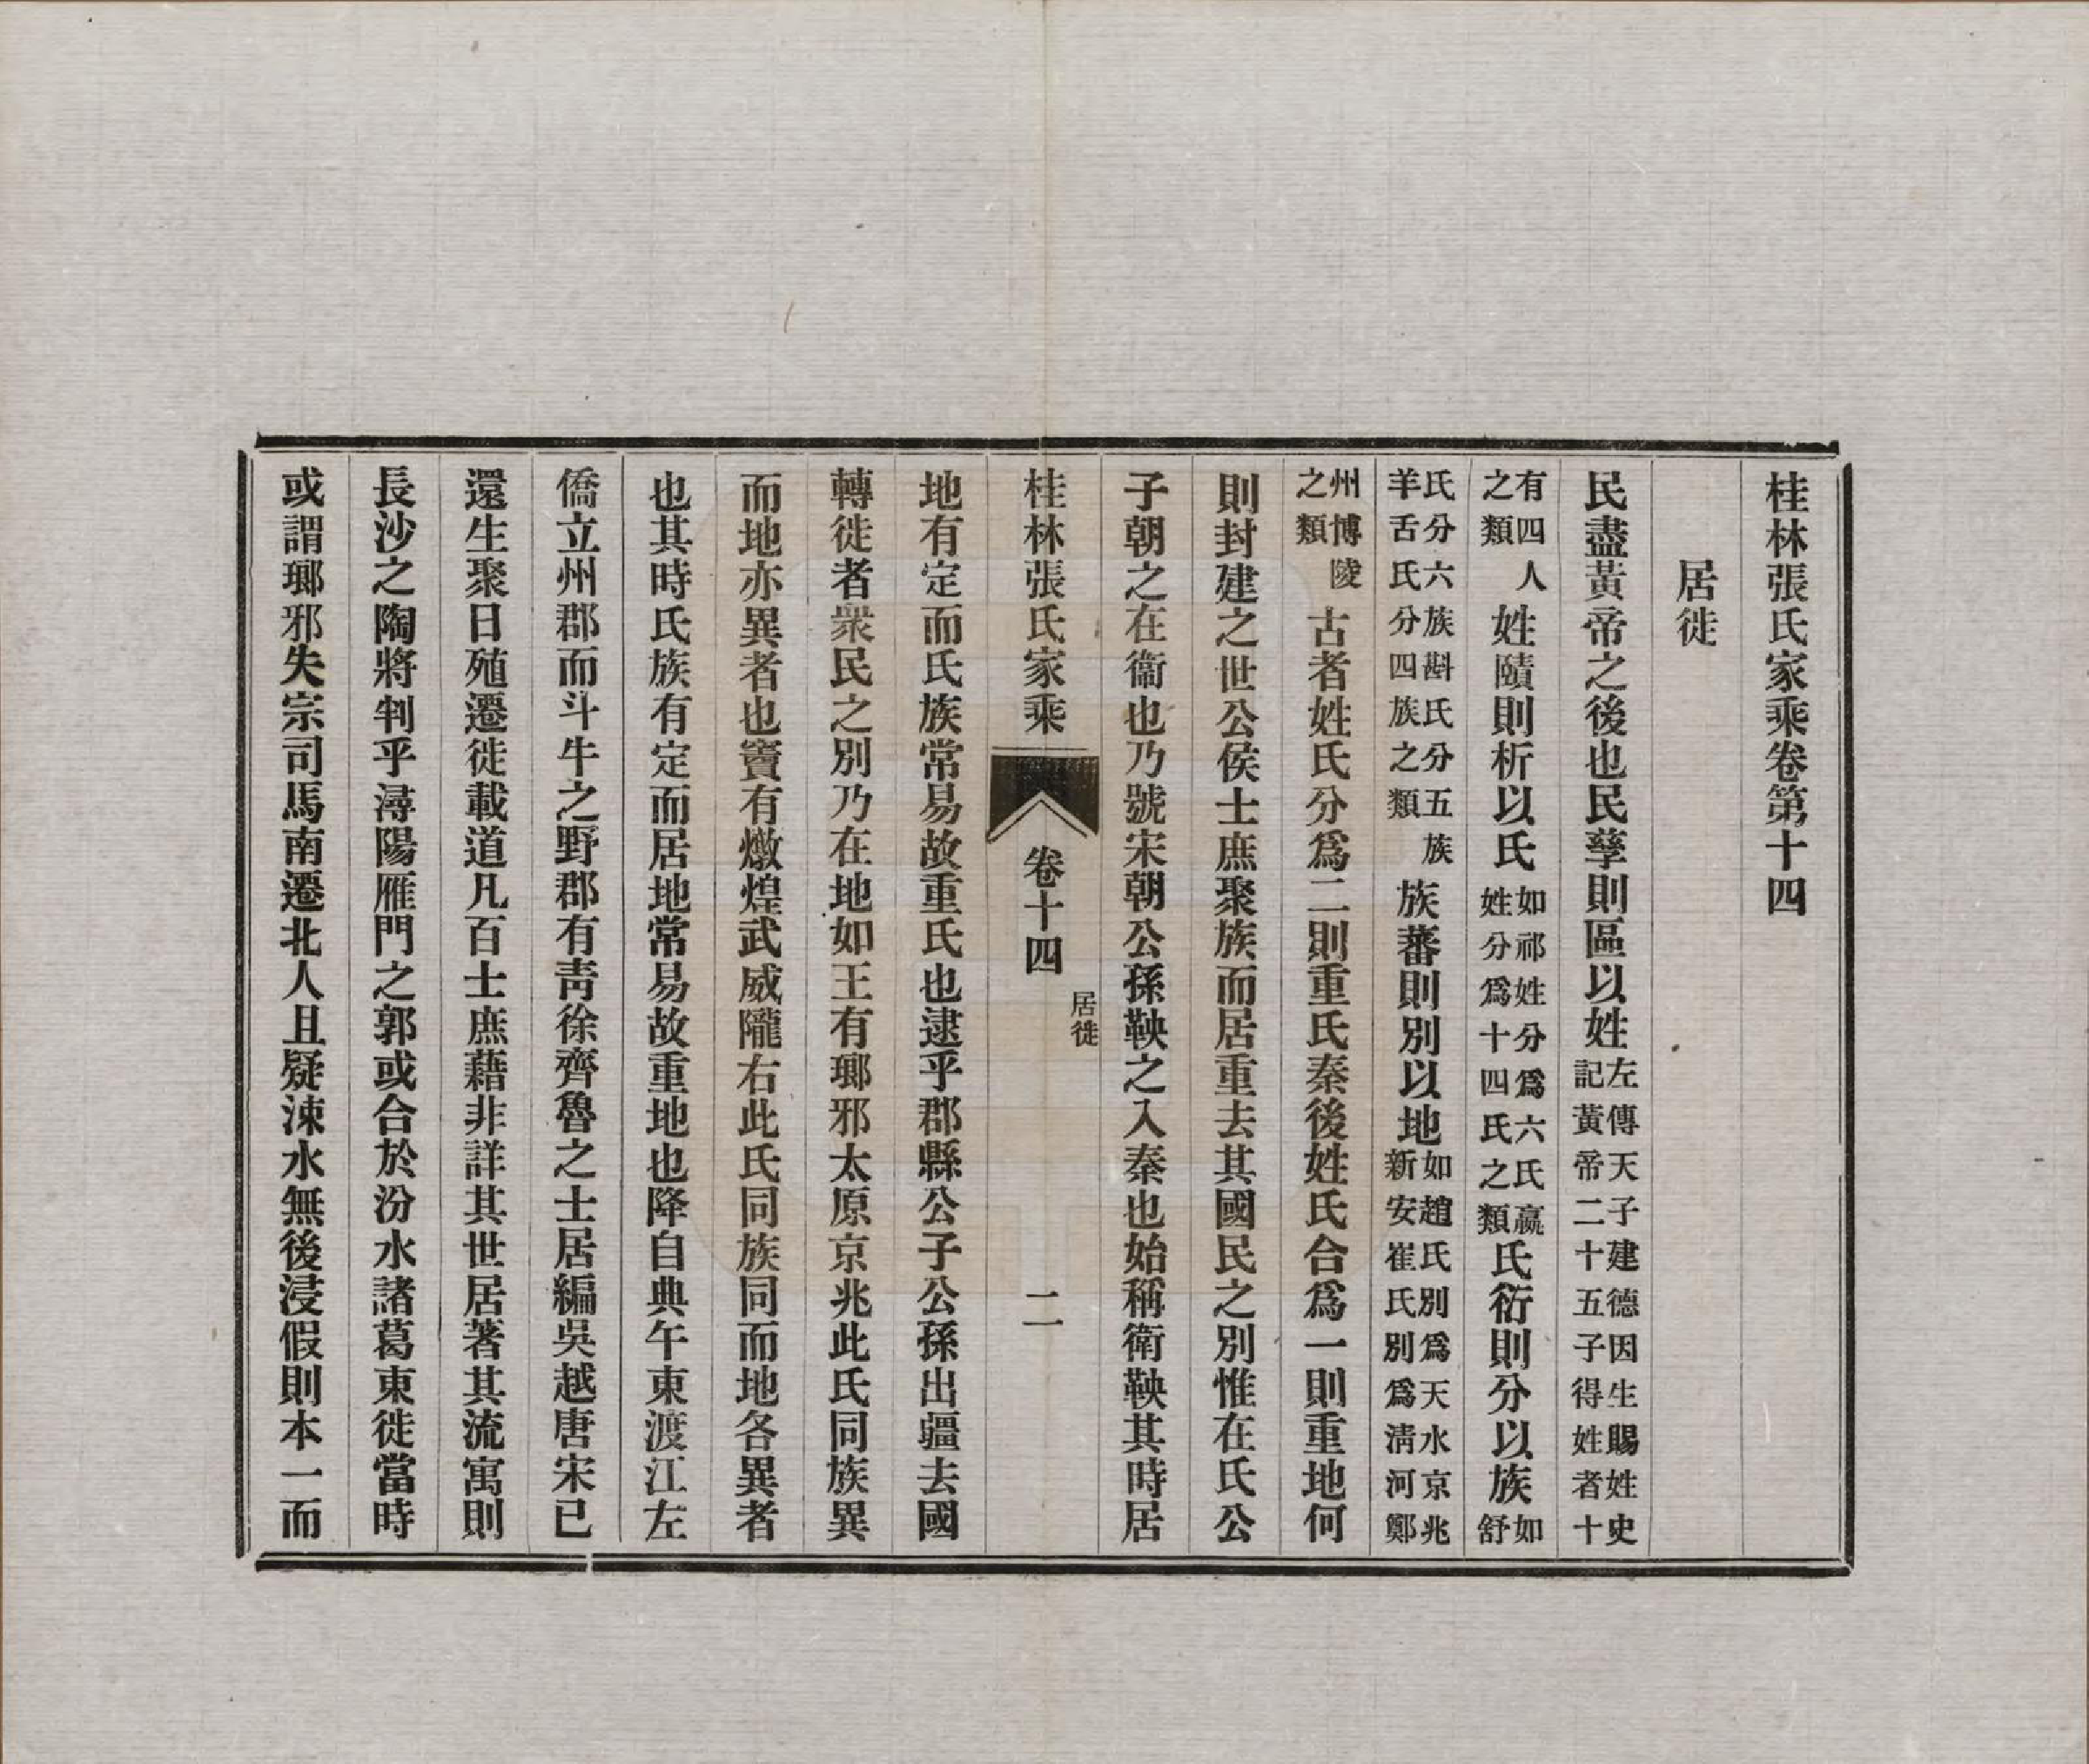 桂林張氏家乘卷第十四
居徙
民盡黃帝之後也民孳則區以姓左傳天子建德因生賜姓史記黃帝二十五子得姓者十
有四人之類姓賾則析以氏如祁姓分爲六氏嬴姓分爲十四氏之類氏衍則分以族如舒
氏分六族斟氏分五族羊舌氏分四族之類族蕃則別以地如趙氏別爲天水京兆新安崔氏別爲淸河鄭
州博陵之類古者姓氏分爲二則重氏秦後姓氏合爲一則重地何
則封建之世公侯士庶聚族而居重去其國民之別惟在氏公
子朝之在衞也乃號宋朝公孫鞅之入秦也始稱衛鞅其時居
桂林張氏家乘
卷十四
居徙
二
地有定而氏族常易故重氏也逮乎郡縣公子公孫出疆去國
轉徙者衆民之別乃在地如王有瑯邪太原京兆此氏同族異
而地亦異者也竇有燉煌武威隴右此氏同族同而地各異者
也其時氏族有定而居地常易故重地也降自典午東渡江左
僑立州郡而斗牛之野郡有靑徐齊魯之士居編吳越唐宋已
還生聚日殖遷徙載道凡百士庶藉非詳其世居著其流寓則
長沙之陶將判乎潯陽雁門之郭或合於汾水諸葛東徙當時
或謂瑯邪失宗司馬南遷北人且疑涑水無後浸假則本一而